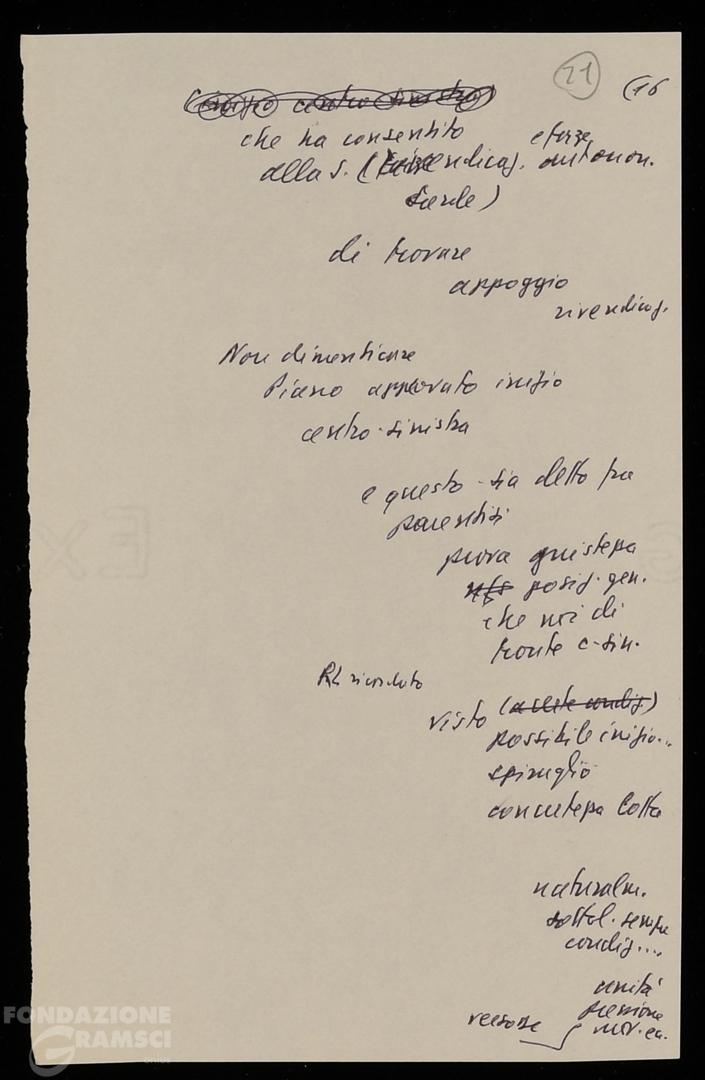 21 (16
(inizio centro sinistra)
che ha consentito
alla S. ( rivendicaz. e forze autonom.
sarde)
di trovare
appoggio
rivendicaz.
Non dimenticare
Piano approvato inizio
centro-sinistra
e questo - sia detto tra
parentesi
prova giustezza
posiz. gen.
che noi di
fronte c-sin.
ricordato
visto (a certe condiz)
possibile inizio...
spiraglio
concretezza lotta
naturalm.
sottol. sempre
condiz....
unità
pressione
FONDAZIONE
GRAMSCI
onlus